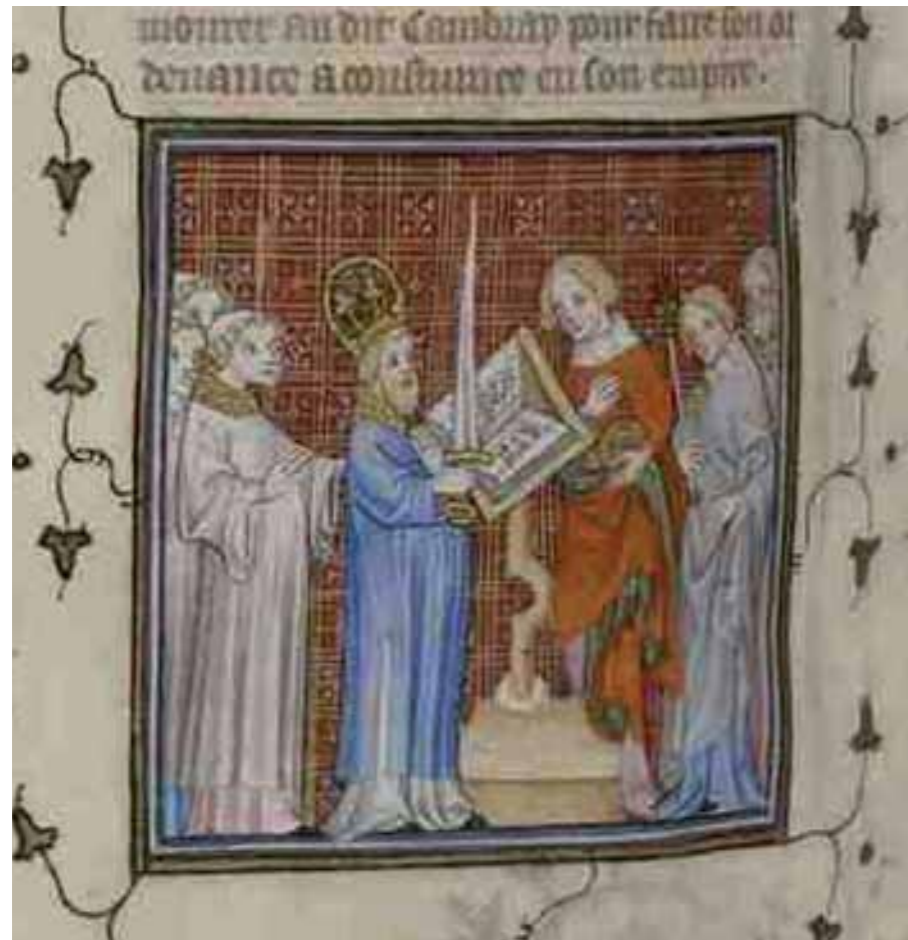 mourer au dit Cambray pour faire son or
denance acoustumee en son empire.